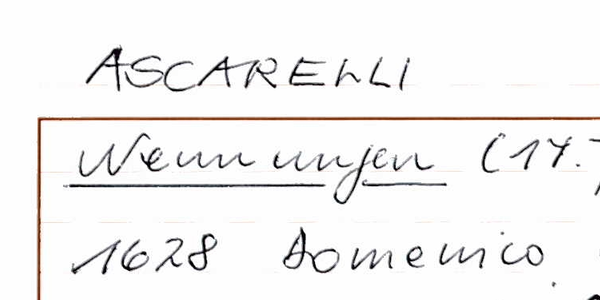 ASCARELLI
Nennungen (17.)
1628 Domenico